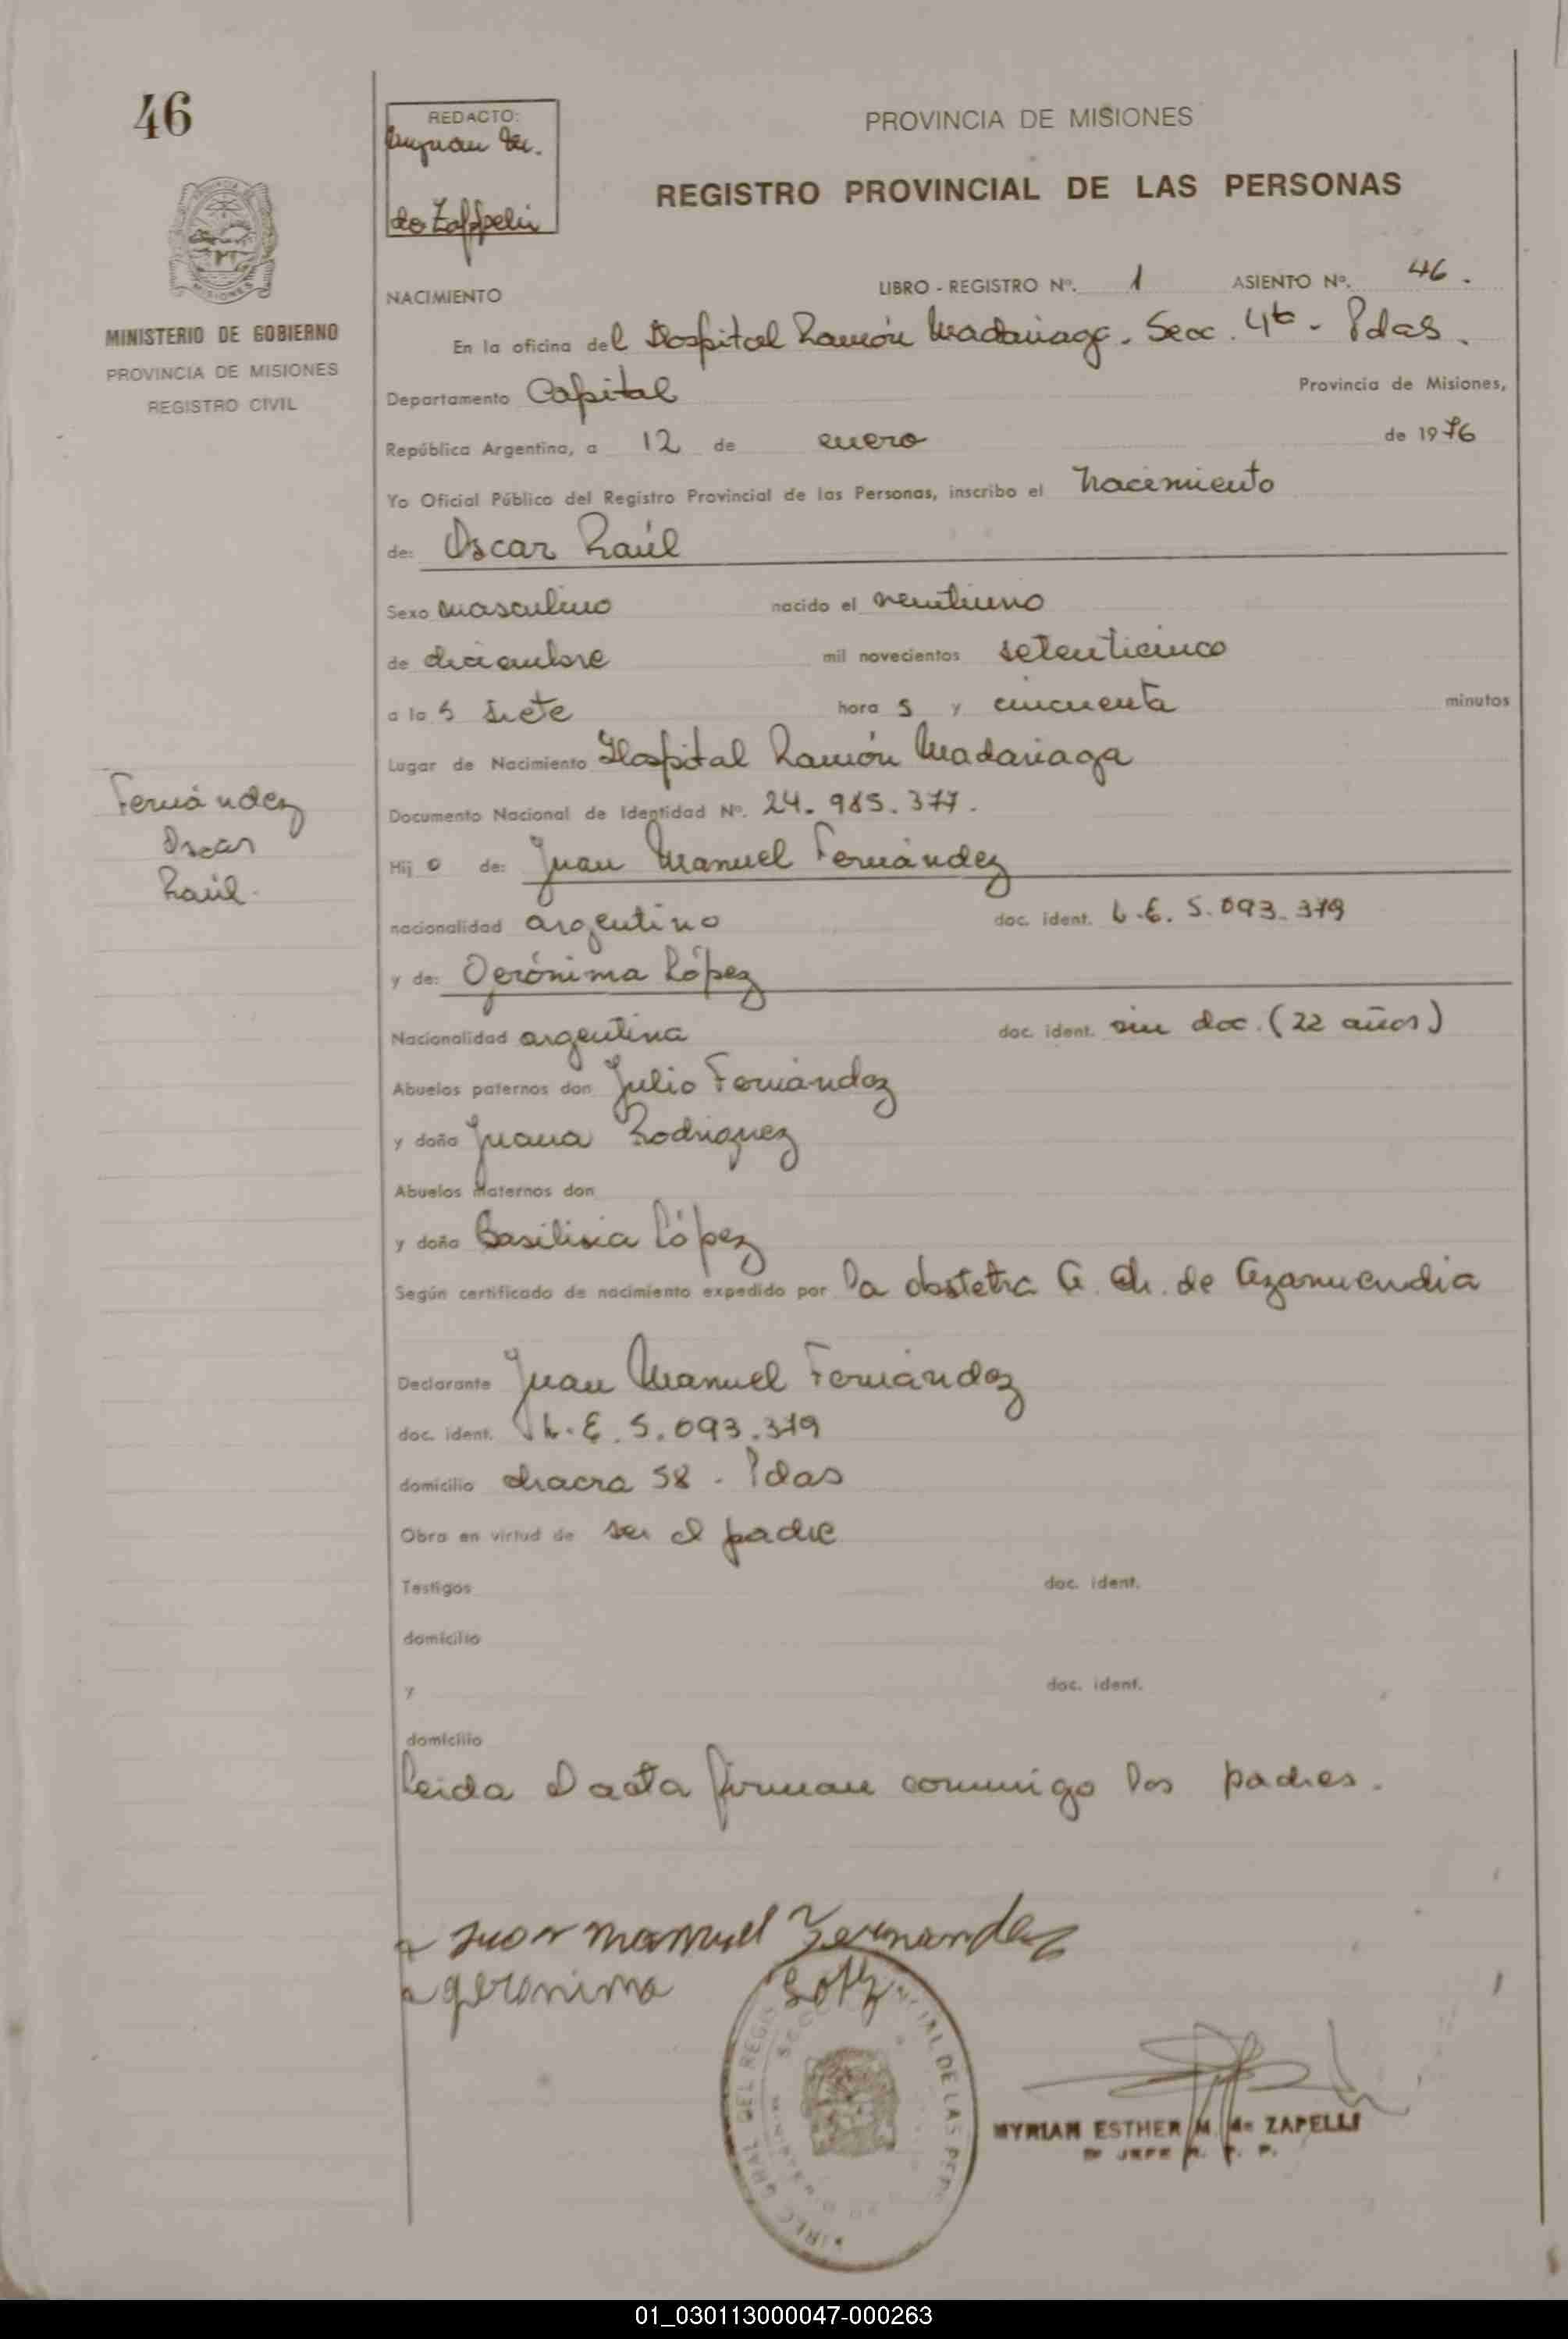 46
REDACTO:
de Zappelli
PROVINCIA DE MISIONES
REGISTRO PROVINCIAL DE LAS PERSONAS
MISIONES
MINISTERIO DE GOBIERNO
PROVINCIA DE MISIONES
REGISTRO CIVIL
NACIMIENTO LIBRO - REGISTRO Nº. 1 ASIENTO Nº. 46.
En la oficina del Hospital Ramón Madariaga. Secc. 4ta - Pdas.
Departamento Capital Provincia de Misiones,
República Argentina, a 12 de enero de 1976
Yo Oficial Público del Registro Provincial de las Personas, inscribo el nacimiento
de: Oscar Raúl
Sexo masculino nacido el veintiuno
de diciembre mil novecientos setenticinco
a las siete horas y cincuenta minutos
Lugar de Nacimiento Hospital Ramón Madariaga
Documento Nacional de Identidad Nº. 24.985.377.
Fernández
Oscar
Raúl.
Hijo de: Juan Manuel Fernández
nacionalidad argentino doc. ident. L.E. 5.093.379
y de: Gerónima López
Nacionalidad argentina doc. ident. sin doc. (22 años)
Abuelos paternos don Julio Fernández
y doña Juana Rodriguez
Abuelos maternos don
y doña Basilisia López
Según certificado de nacimiento expedido por la obstetra G. Ch. de Azamendia
Declarante Juan Manuel Fernández
doc. ident. L.E. 5.093.379
domicilio chacra 58 - Pdas
Obra en virtud de ser el padre
Testigos doc. ident.
domicilio
y doc. ident.
domicilio
Leida el acta firman conmigo los padres.
Juan manuel Fernandez
geronima
MYRIAM ESTHER M. de ZAPELLI
JEFE R. P. P.
01_030113000047-000263